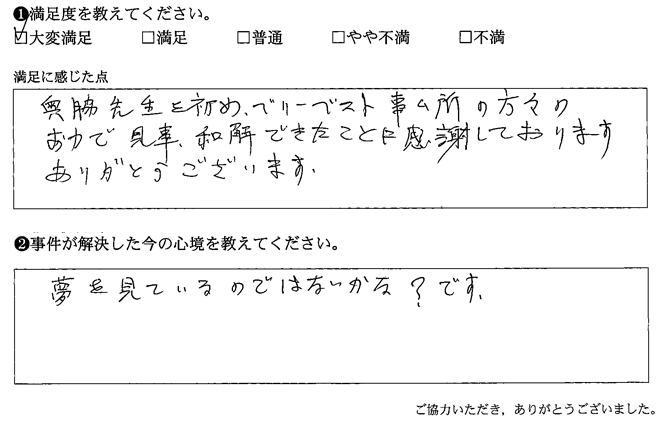 ❶満足度を教えてください。
☑大変満足 □満足 □普通 □やや不満 □不満
満足に感じた点
奥脇先生を初め、ベリーベスト事ム所の方々の
お力で見事、和解できたことに感謝しております
ありがとうございます.
❷事件が解決した今の心境を教えてください。
夢を見ているのではないかな？です.
ご協力いただき，ありがとうございました。